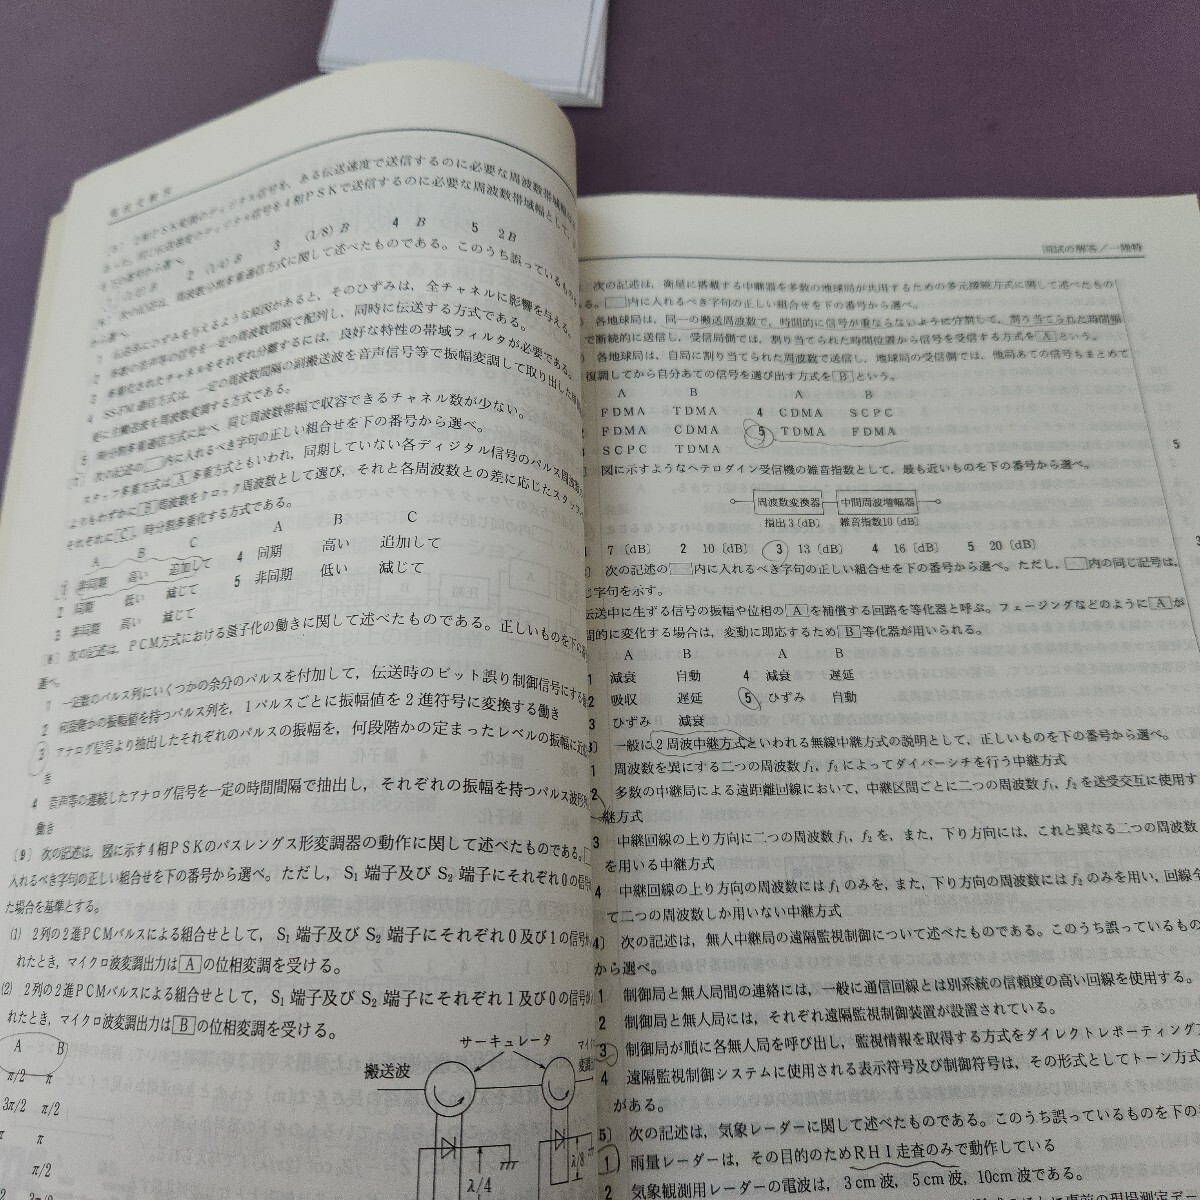 電波受験界
(1/4) B 3 (1/8) B 4 B 5 2B
次の記述は，周波数分割多重通信方式に関して述べたものである。このうち誤っているものを
伝送系にひずみを与えるような原因があると，そのひずみは，全チャネルに影響を与える。
2 多数の音声等の信号を一定の周波数間隔で配列し，同時に伝送する方式である。
3 多重化されたチャネルをそれぞれ分離するには，良好な特性の帯域フィルタが必要である。
4 SS-FM通信方式は，一定の周波数間隔の副搬送波を音声信号等で振幅変調して取り出した
更に主搬送波を周波数変調する方式である。
5 時分割多重通信方式に比べ 同じ周波数帯幅で収容できるチャネル数が少ない。
〔7〕 次の記述の 内に入れるべき字句の正しい組合せを下の番号から選べ。
スタッフ多重方式は A 多重方式ともいわれ，同期していない各ディジタル信号のパルス周波数
よりもわずかに B 周波数をクロック周波数として選び，それと各周波数との差に応じたスタッフ
それぞれに C ，時分割多重化する方式である。
A B C A B C
1 非同期 高い 追加して 4 同期 高い 追加して
2 同期 低い 減じて 5 非同期 低い 減じて
3 非同期 高い 減じて
〔8〕 次の記述は，PCM方式における量子化の働きに関して述べたものである。正しいものを下の
選べ。
1 一定数のパルス列にいくつかの余分のパルスを付加して，伝送時のビット誤り制御信号にする
2 何段階かの振幅値を持つパルス列を，1パルスごとに振幅値を2進符号に変換する働き
3 アナログ信号より抽出したそれぞれのパルスの振幅を，何段階かの定まったレベルの振幅に近
き
4 音声等の連続したアナログ信号を一定の時間間隔で抽出し，それぞれの振幅を持つパルス波形
働き
〔9〕 次の記述は，図に示す4相PSKのパスレングス形変調器の動作に関して述べたものである。
入れるべき字句の正しい組合せを下の番号から選べ。ただし，S₁端子及びS₂端子にそれぞれ0の信号
た場合を基準とする。
(1) 2列の2進PCMパルスによる組合せとして，S₁端子及びS₂端子にそれぞれ0及び1の信号
れたとき，マイクロ波変調出力は A の位相変調を受ける。
(2) 2列の2進PCMパルスによる組合せとして，S₁端子及びS₂端子にそれぞれ1及び0の信号
れたとき，マイクロ波変調出力は B の位相変調を受ける。
A B
π/2 π
3π/2 π/2
π π
π/2
サーキュレータ
搬送波
λ/4
λ/8
国試の解答／一陸特
次の記述は，衛星に搭載する中継器を多数の地球局が共用するための多元接続方式に関して述べたもの
る。 内に入れるべき字句の正しい組合せを下の番号から選べ。
各地球局は，同一の搬送周波数で，時間的に信号が重ならないように分割して，割り当てられた時間幅
で断続的に送信し，受信局側では，割り当てられた時間位置から信号を受信する方式を A という。
各地球局は，自局に割り当てられた周波数で送信し，地球局の受信側では，他局あての信号もまとめて
復調してから自分あての信号を選び出す方式を B という。
A B A B
FDMA TDMA 4 CDMA SCPC
FDMA CDMA 5 TDMA FDMA
SCPC TDMA
図に示すようなヘテロダイン受信機の雑音指数として，最も近いものを下の番号から選べ。
周波数変換器 中間周波増幅器
損出3〔dB〕 雑音指数10〔dB〕
7〔dB〕 2 10〔dB〕 3 13〔dB〕 4 16〔dB〕 5 20〔dB〕
次の記述の 内に入れるべき字句の正しい組合せを下の番号から選べ。ただし， 内の同じ記号は，
じ字句を示す。
伝送中に生ずる信号の振幅や位相の A を補償する回路を等化器と呼ぶ。フェージングなどのように A が
間的に変化する場合は，変動に即応するため B 等化器が用いられる。
A B A B
1 減衰 自動 4 減衰 遅延
2 吸収 遅延 5 ひずみ 自動
3 ひずみ 減衰
一般に2周波中継方式といわれる無線中継方式の説明として，正しいものを下の番号から選べ。
1 周波数を異にする二つの周波数f₁，f₂によってダイバーシチを行う中継方式
2 多数の中継局による遠距離回線において，中継区間ごとに二つの周波数f₁，f₂を送受交互に使用す
継方式
3 中継回線の上り方向に二つの周波数f₁，f₂を，また，下り方向には，これと異なる二つの周波数
を用いる中継方式
4 中継回線の上り方向の周波数にはf₁のみを，また，下り方向の周波数にはf₂のみを用い，回線
て二つの周波数しか用いない中継方式
4〕 次の記述は，無人中継局の遠隔監視制御について述べたものである。このうち誤っているもの
から選べ。
1 制御局と無人局間の連絡には，一般に通信回線とは別系統の信頼度の高い回線を使用する。
2 制御局と無人局には，それぞれ遠隔監視制御装置が設置されている。
3 制御局が順に各無人局を呼び出し，監視情報を取得する方式をダイレクトレポーティング
4 遠隔監視制御システムに使用される表示符号及び制御符号は，その形式としてトーン方式
がある。
5〕 次の記述は，気象レーダーに関して述べたものである。このうち誤っているものを下の
1 雨量レーダーは，その目的のためRHI走査のみで動作している
2 気象観測用レーダーの電波は，3cm波，5cm波，10cm波である。